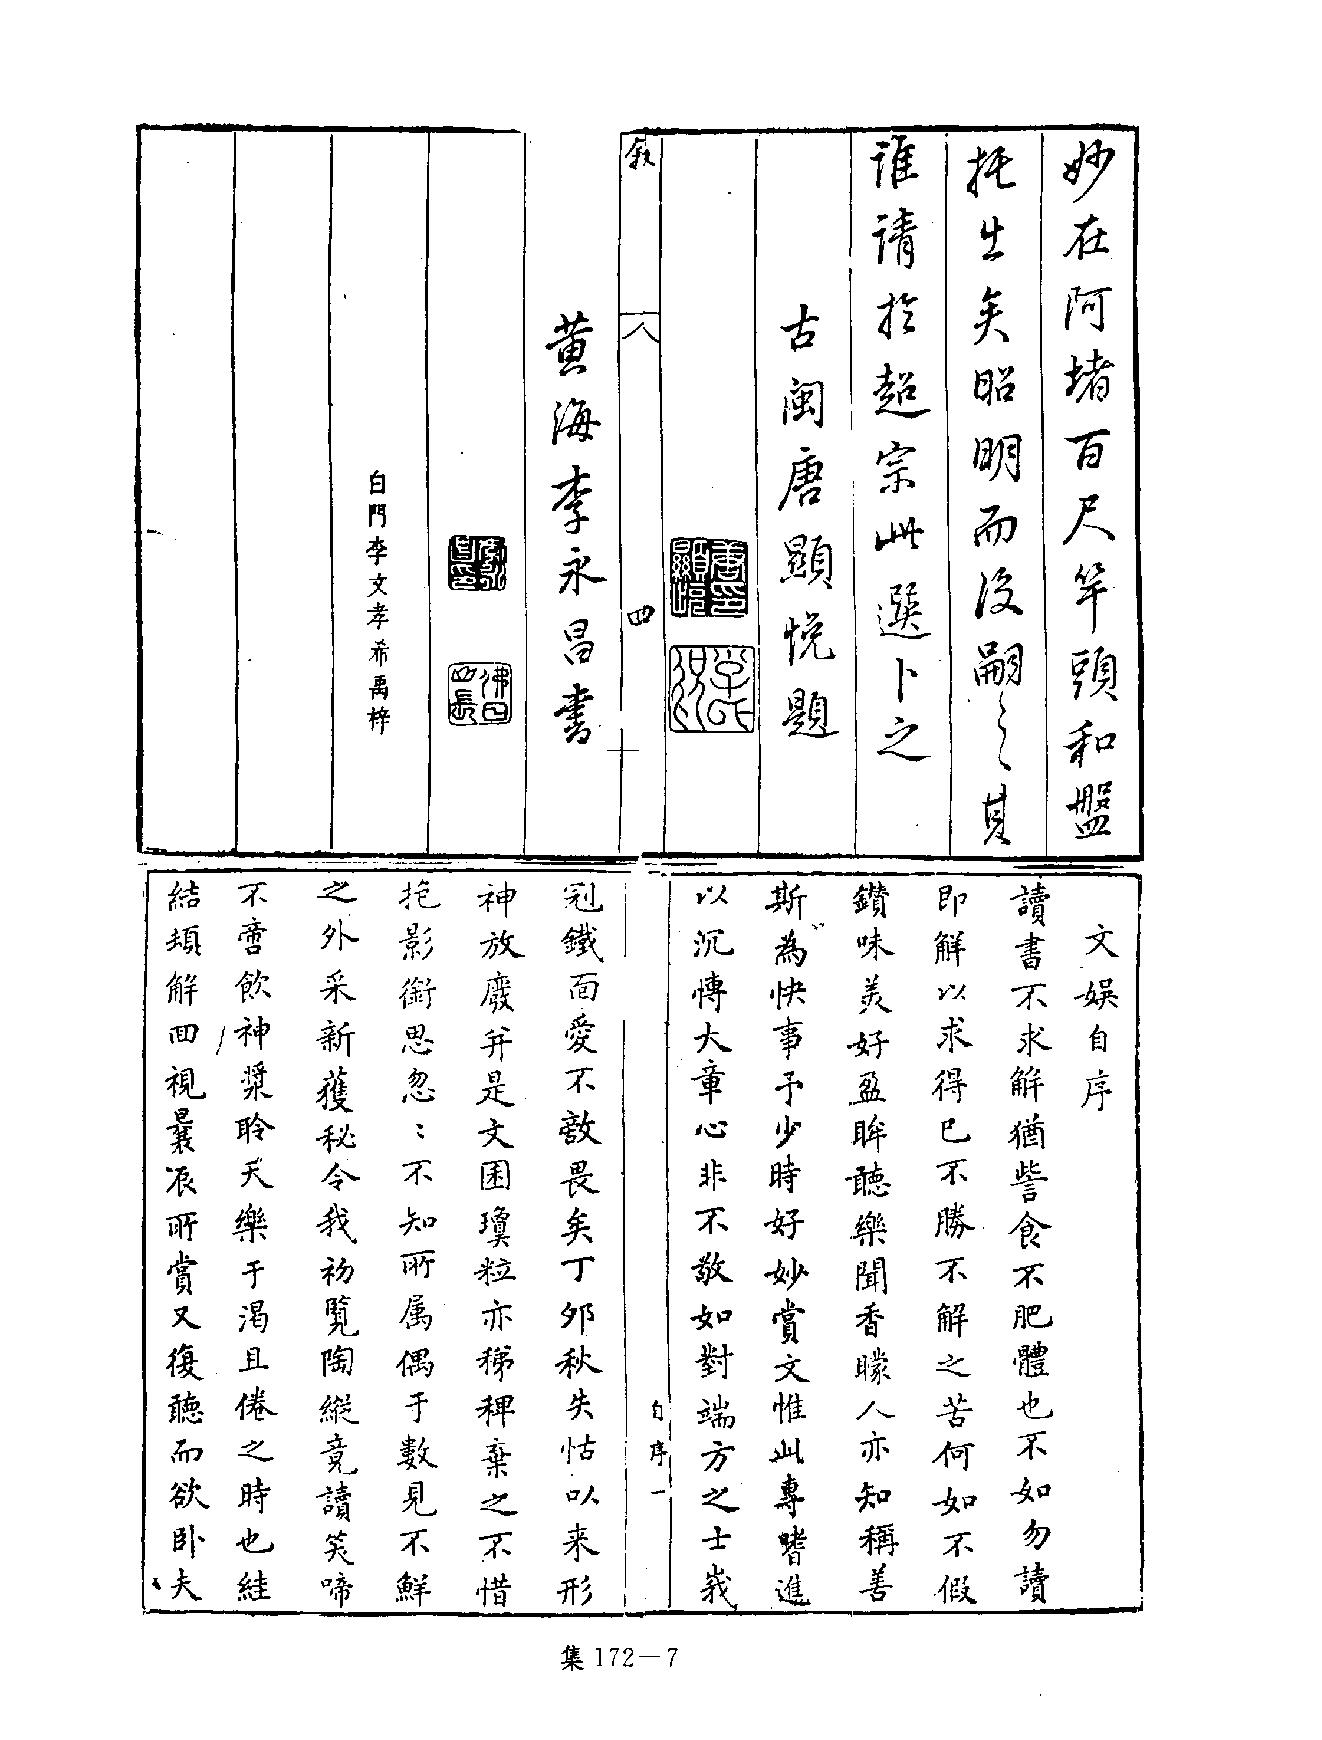 妙在阿堵百尺竿頭和盤
托出矣昭明而後嗣之其
誰請於超宗此選卜之
古閩唐顯悅題
敘
八
四
黃海李永昌書
白門李文孝希禹梓
文娛自序
讀書不求解猶訾食不肥體也不如勿讀
即解以求得已不勝不解之苦何如不假
鑽味美好盈眸聽樂聞香矇人亦知稱善
斯為快事予少時好妙賞文惟此專嗜進
以沉博大章心非不敬如對端方之士峩
自序一
冠鐵面愛不敵畏矣丁夘秋失怙以来形
神放廢并是文囷瓊粒亦稊稗棄之不惜
抱影銜思忽〻不知所属偶于數見不鮮
之外采新獲秘令我初覽陶縱竟讀笑啼
不啻飲神漿聆天樂于渴且倦之時也絓
結頓解回視曩辰所賞又復聽而欲卧夫
集172－7